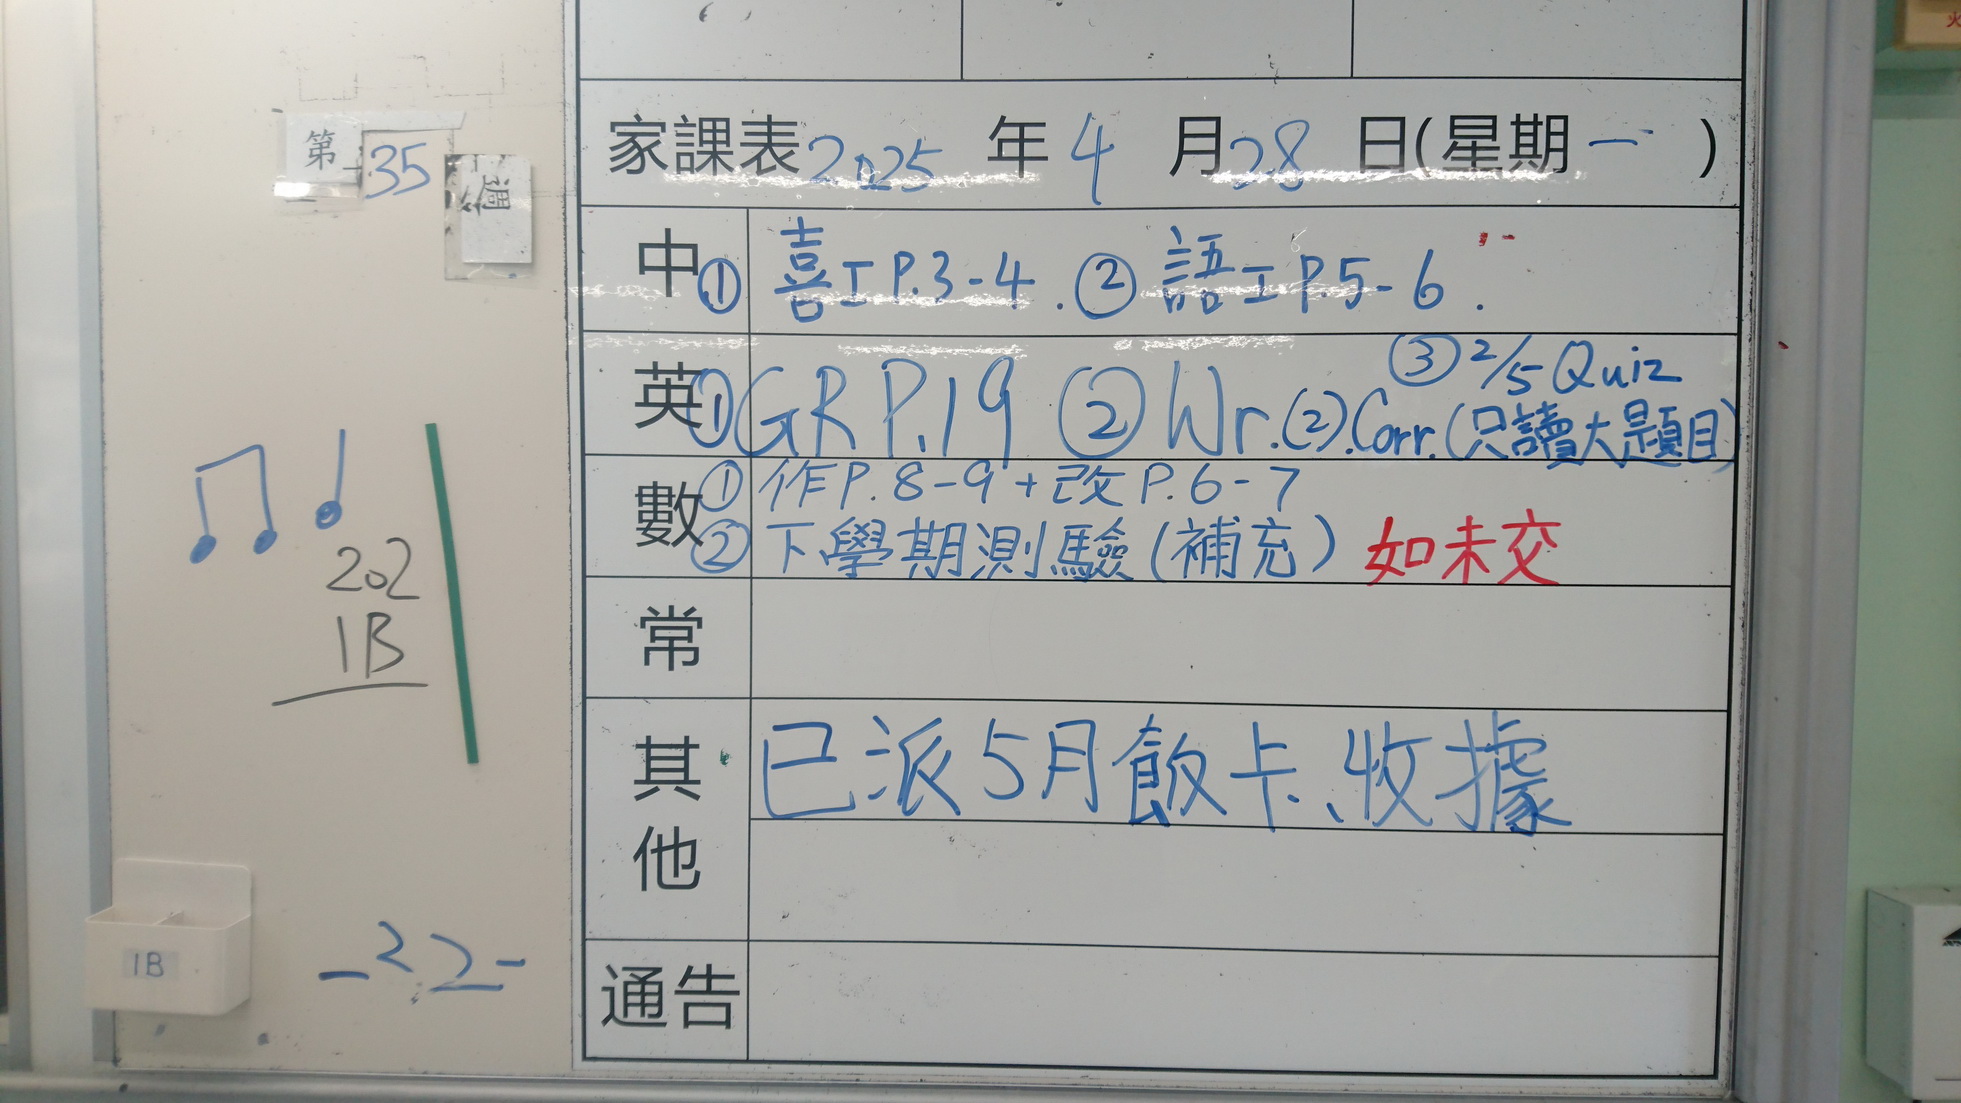 第 35 週
家課表 2025 年 4 月 28 日(星期一)
中 ① 喜工 P.3-4. ② 語工 P.5-6.
英 ① GR P.19 ② Wr.(2).Corr.(只讀大題目)
③ 2/5 Quiz
數 ① 作 P.8-9+改 P.6-7
② 下學期測驗(補充) 如未交
常
其他 已派5月飯卡、收據
通告
202
1B
1B